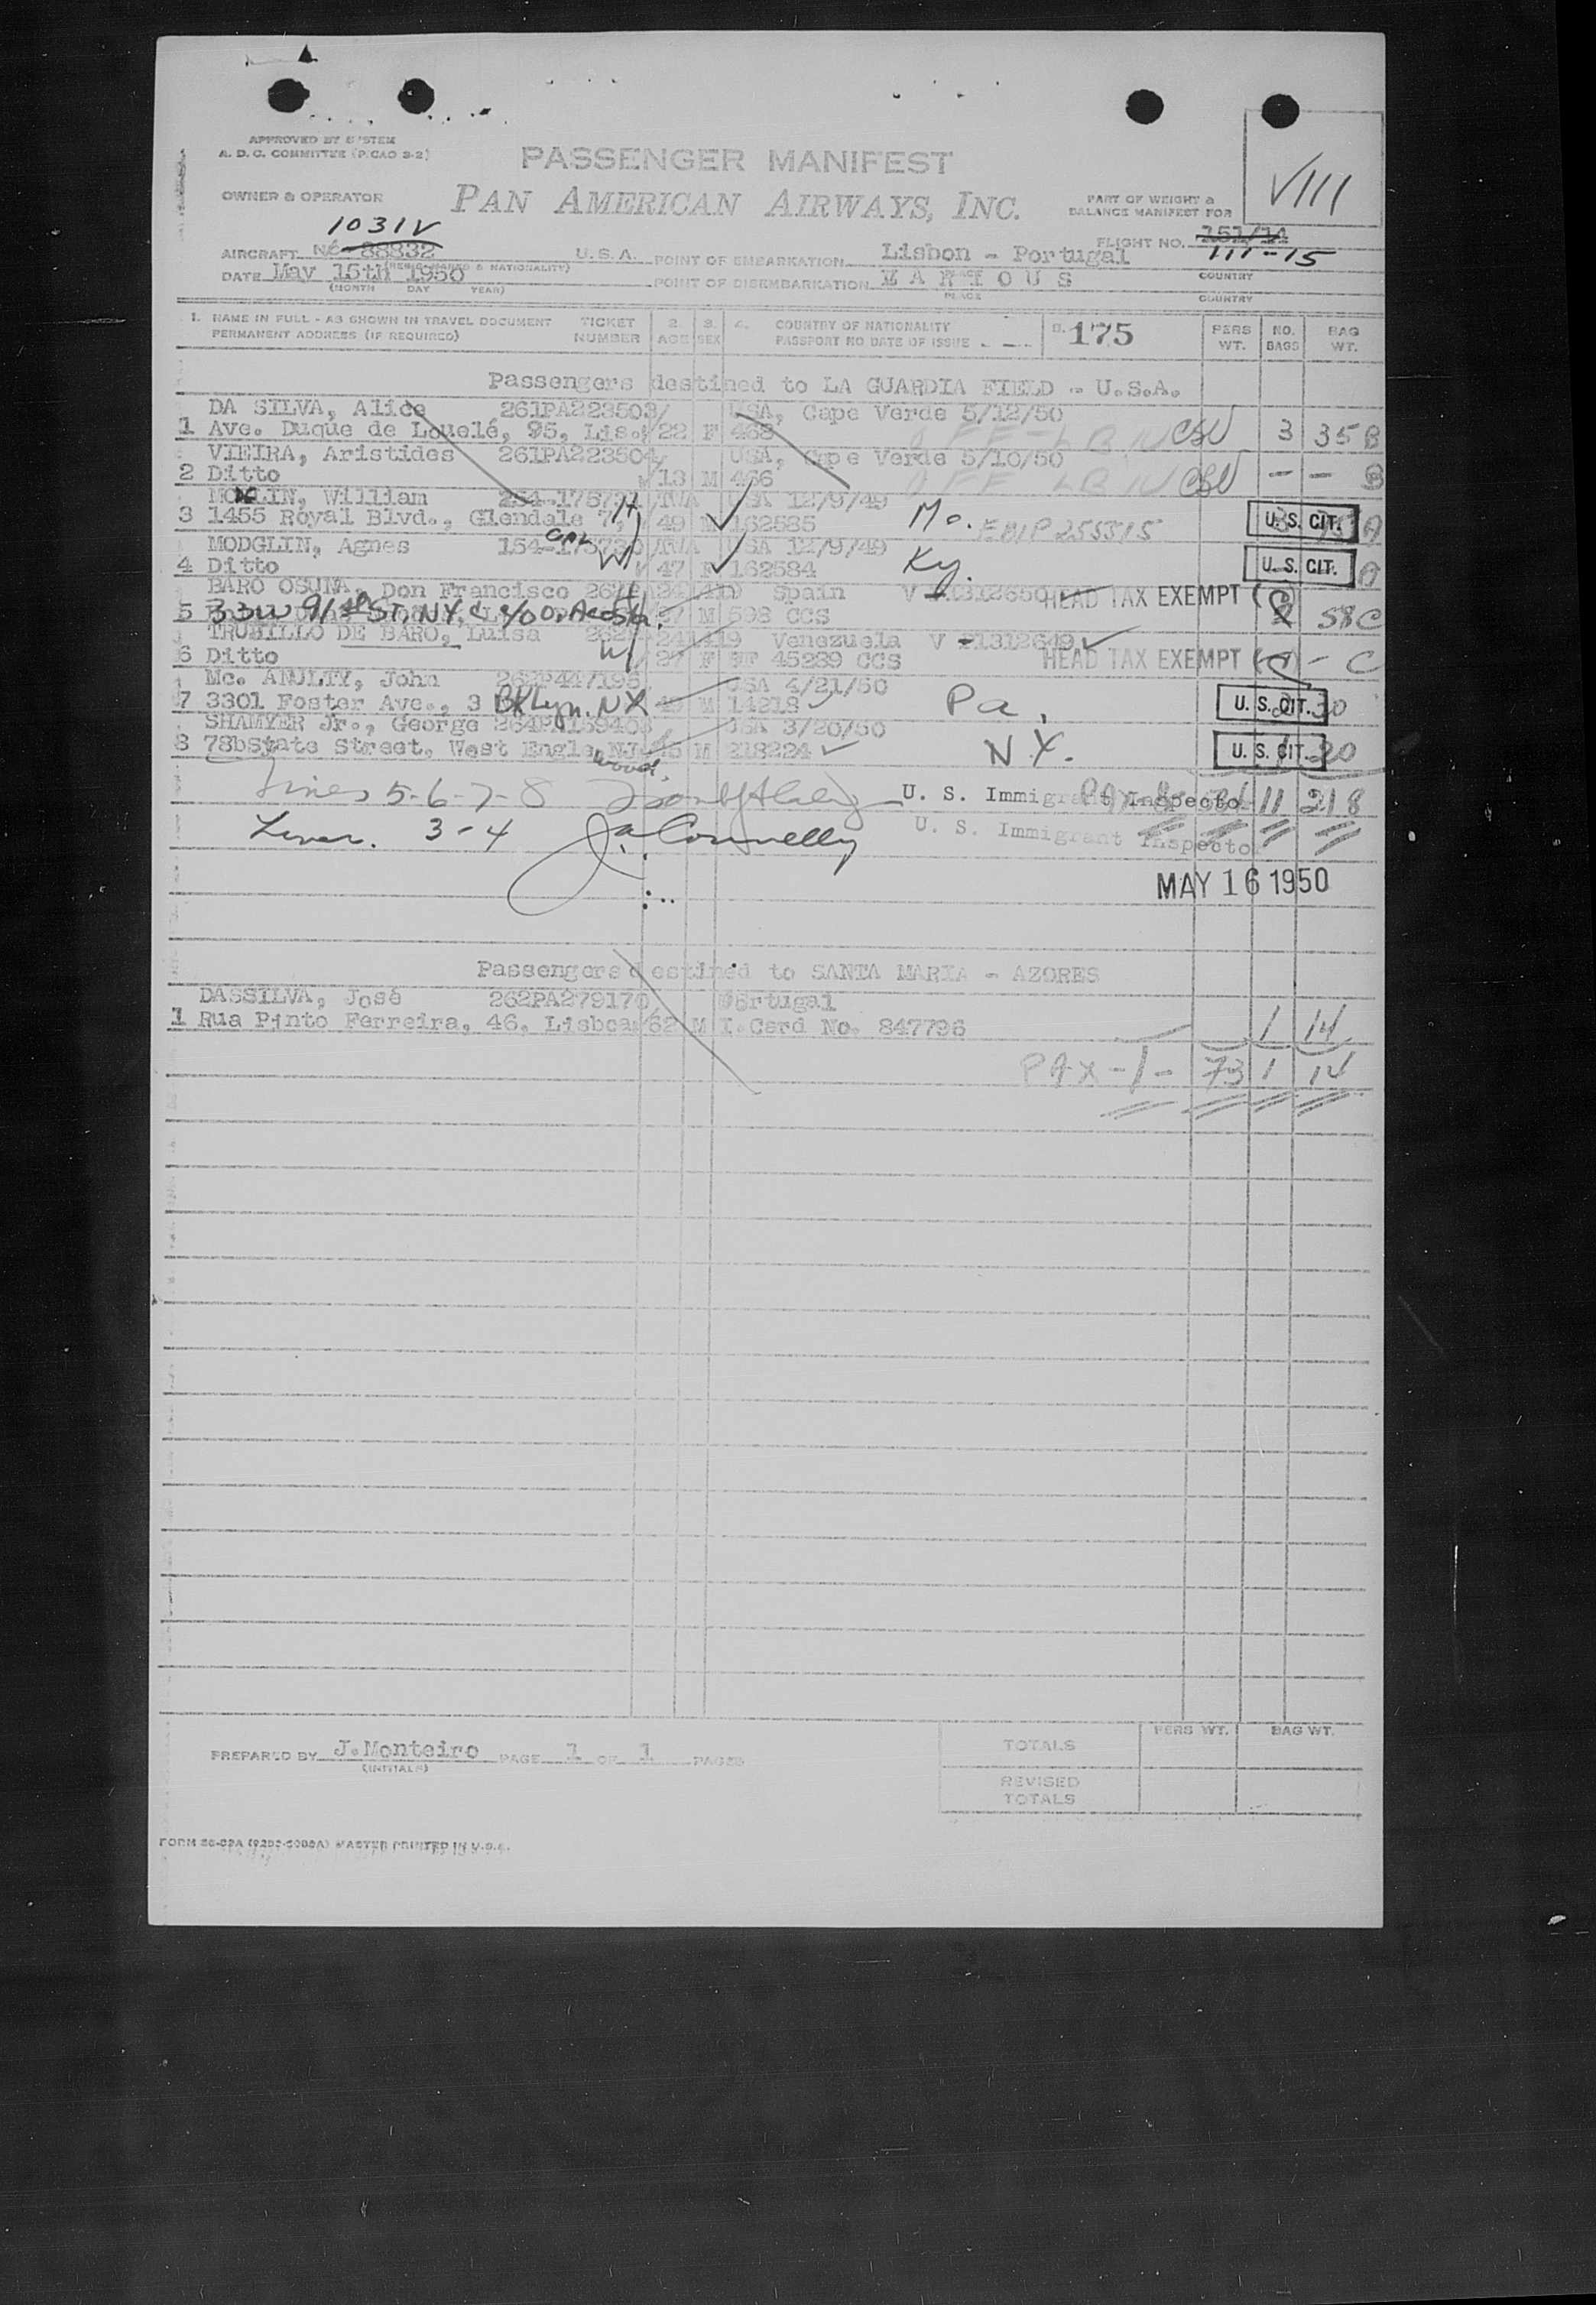 APPROVED BY SYSTEM
A. D. C. COMMITTEE (PICAO 3-2)
PASSENGER MANIFEST
OWNER & OPERATOR
PAN AMERICAN AIRWAYS, INC.
PART OF WEIGHT &
BALANCE MANIFEST FOR
VIII
1031V
AIRCRAFT NC-88832 U.S.A. POINT OF EMBARKATION Lisbon - Portugal FLIGHT NO. 151/14
111-15
DATE May 15th 1950 POINT OF DISEMBARKATION V A R I O U S
(MONTH DAY YEAR) PLACE COUNTRY
1. NAME IN FULL - AS SHOWN IN TRAVEL DOCUMENT TICKET 2. 3. 4. COUNTRY OF NATIONALITY 5. 175 PERS NO. BAG
PERMANENT ADDRESS (IF REQUIRED) NUMBER AGE SEX PASSPORT NO DATE OF ISSUE WT. BAGS WT.
Passengers destined to LA GUARDIA FIELD - U.S.A.
DA SILVA, Alice 261PA223503/ USA, Cape Verde 5/12/50
1 Ave. Duque de Loulé, 95, Lis. 22 F 468 3 35 B
VIEIRA, Aristides 261PA223504/ USA, Cape Verde 5/10/50
2 Ditto 13 M 466 - - B
MODGLIN, William TWA USA 12/9/49
3 1455 Royal Blvd., Glendale 7, H 49 M 162585 Mo. U. S. CIT. A
MODGLIN, Agnes TWA USA 12/9/49
4 Ditto Cal W 47 F 162584 Ky. U. S. CIT. A
BARO OSUNA, Don Francisco Spain V HEAD TAX EXEMPT
5 33 W 91st St, NYC c/o O. Acosta. 27 M 598 CCS 58 C
TRUJILLO DE BARO, Luisa Venezuela V 1312649
6 Ditto W 27 F 45289 CCS HEAD TAX EXEMPT - C
Mc. ANULTY, John USA 4/21/50
7 3301 Foster Ave., 3 Bklyn. NY M 14218 Pa. U. S. CIT.
SHAMYER Jr., George USA 3/20/50
8 78b State Street, West Englewood, NJ M 218224 N.Y. U. S. CIT. 20
Lines 5-6-7-8 U. S. Immigrant Inspector 11 218
3-4 J.A. Connelly U. S. Immigrant Inspector
MAY 16 1950
Passengers destined to SANTA MARIA - AZORES
DASSILVA, José 262PA279170 Portugal
1 Rua Pinto Ferreira, 46, Lisboa 62 M I. Card No. 847796 1 14
PAX - 1 - 73 1 14
PREPARED BY J. Monteiro PAGE 1 OF 1 PAGES
(INITIALS)
PERS WT. BAG WT.
TOTALS
REVISED
TOTALS
MASTER PRINTED IN U.S.A.